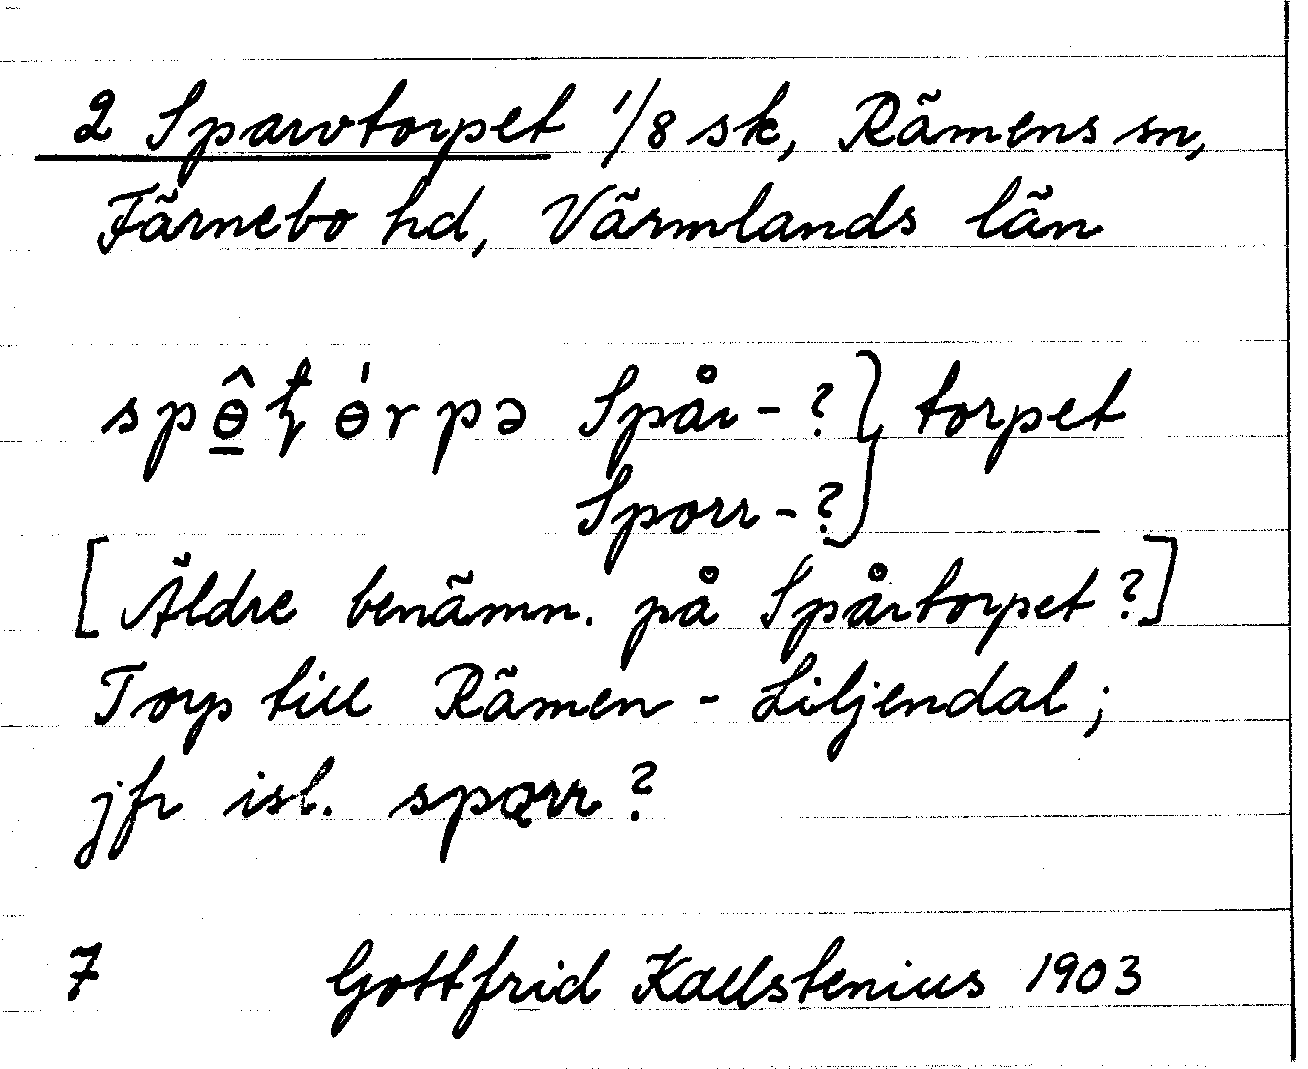 2 Sparvtorpet 1/8 sk, Rämens sn,
Färnebo hd, Värmlands län
spɵ̂ʈɵ́rpə Spår-? } torpet
Sporr-?
[Äldre benämn. på Spårtorpet?]
Torp till Rämen - Liljendal;
jfr isl. spǫrr?
7 Gottfrid Kallstenius 1903